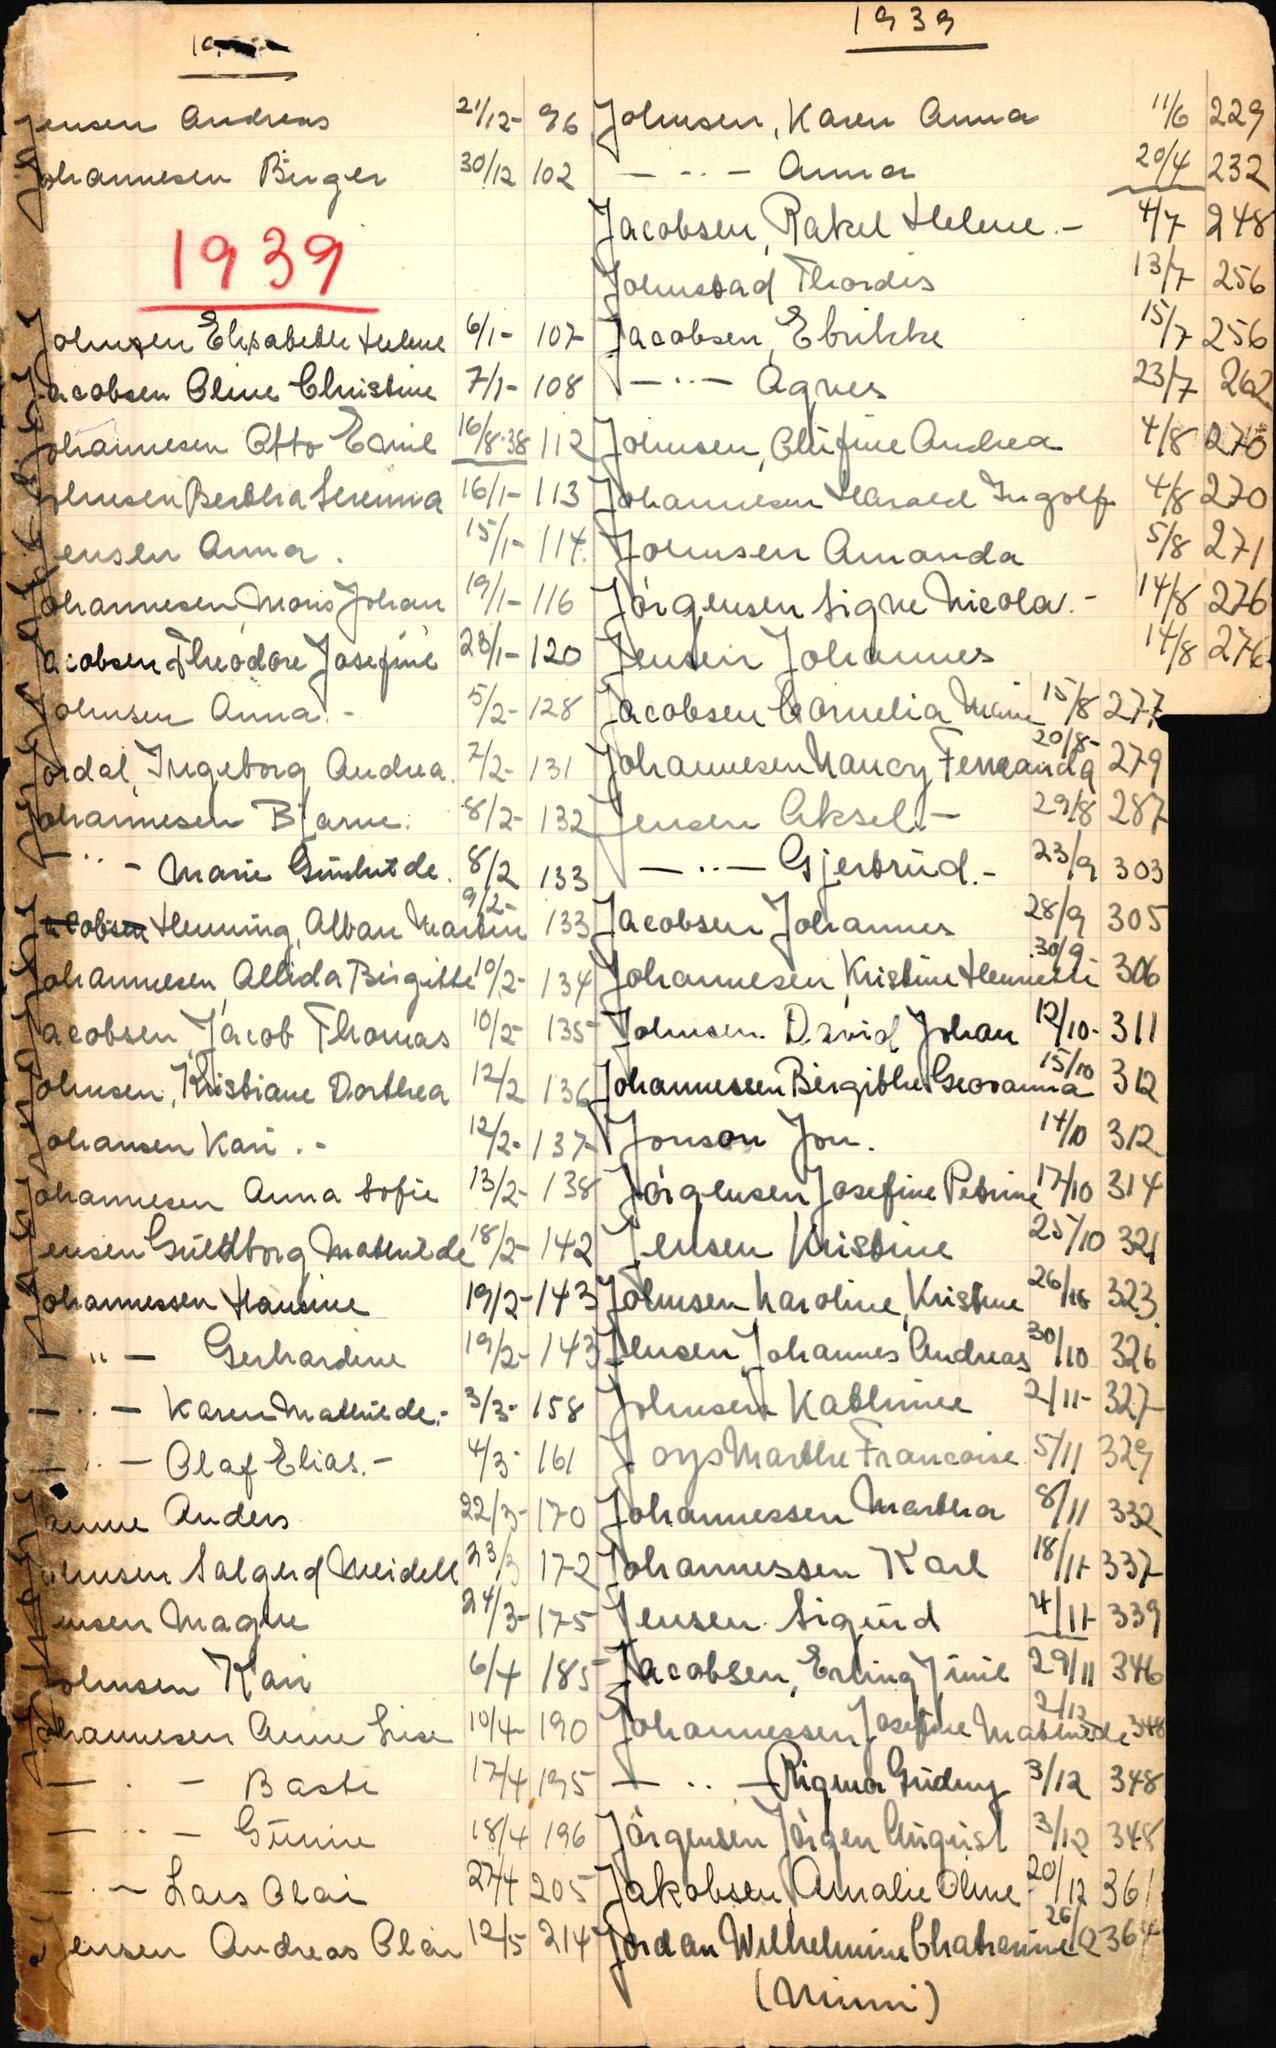 Jensen Andreas 21/12- 96
Johannesen Birger 30/12 102
1939
Johnsen Elisabeth Helene 6/1- 107
Jacobsen Oline Christine 7/1- 108
Johannesen Otto Emil 16/8-38 112
Johnsen Bertha Serenna 16/1- 113
Jensen Anna. 15/1- 114
Johannesen, Mons Johan 19/1- 116
Jacobsen Theodore Josefine 23/1- 120
Johnsen Anna.- 5/2- 128
Jordal, Ingeborg Andrea. 7/2- 131
Johannesen Bjarne. 8/2- 132
- " - Marie 8/2 133
Jacobsen Henning, Alban Martin 9/2- 133
Johannesen, Allida Birgitte 10/2- 134
Jacobsen, Jacob Thomas 10/2- 135
Johnsen, Kristiane Dorthea 12/2 136
Johansen Kari.- 12/2- 137
Johannesen Anna Sofie 13/2- 138
Jensen Guldborg Mathilde 18/2- 142
Johannessen Hansine 19/2- 143
- " - Gerhardine 19/2- 143
- " - Karen Mathilde.- 3/3- 158
- " - Olaf Elias.- 4/3- 161
Anders 22/3- 170
Johnsen Salgerd Meidell 23/3 172
Jensen Magne 24/3- 175
Johnsen Kari 6/4 185
Johannesen Anne Lise 10/4- 190
- " - 17/4 195
- " - Gunnie 18/4 196
- " - Lars Olai 27/4 205
Jensen Andreas Olai 12/5 214
1939
Johnsen, Karen Anna 11/6 229
- " - Anna 20/4 232
Jacobsen, Rakel Helene.- 4/7 248
Johnstad Thordis 13/7 256
Jacobsen, Ebrikke 15/7 256
- " - Agnes 23/7 262
Johnsen, Andrea 4/8 270
Johannesen Harald Ingolf 4/8 270
Johnsen Amanda 5/8 271
Jörgensen Signe Nicola.- 14/8 276
Jensen Johannes 14/8 276
Jacobsen Cornelia Marie 15/8 277
Johannesen Nancy Fernanda 20/8- 279
Jensen Aksel.- 29/8 287
- " - Gjertrud.- 23/9 303
Jacobsen Johannes 28/9 305
Johannesen, Kristine Henriette 30/9- 306
Johnsen. David Johan 12/10- 311
Johannessen Birgithe Georanna 15/10 312
Jonson Jon. 14/10 312
Jörgensen Josefine Petrine 17/10 314
Jensen Kristine 25/10 321
Johnsen Karoline, Kristine 26/10 323
Jensen, Johannes Andreas 30/10 326
Johnsen Kathrine 2/11- 327
Joys Marthe Francoise 5/11 329
Johannessen Martha 8/11 332
Johannessen Karl 18/11- 337
Jensen Sigurd 4/11- 339
Jacobsen, Erling Juul 29/11 346
Johannessen Josefine Mathilde 2/12 348
- " - Rigmor Gudny 3/12 348
Jörgensen Jörgen August 3/12 348
Jakobsen, Amalie Oline 20/12 361
Jordan Wilhelmine Chatrine 26/12 364
(Minni)